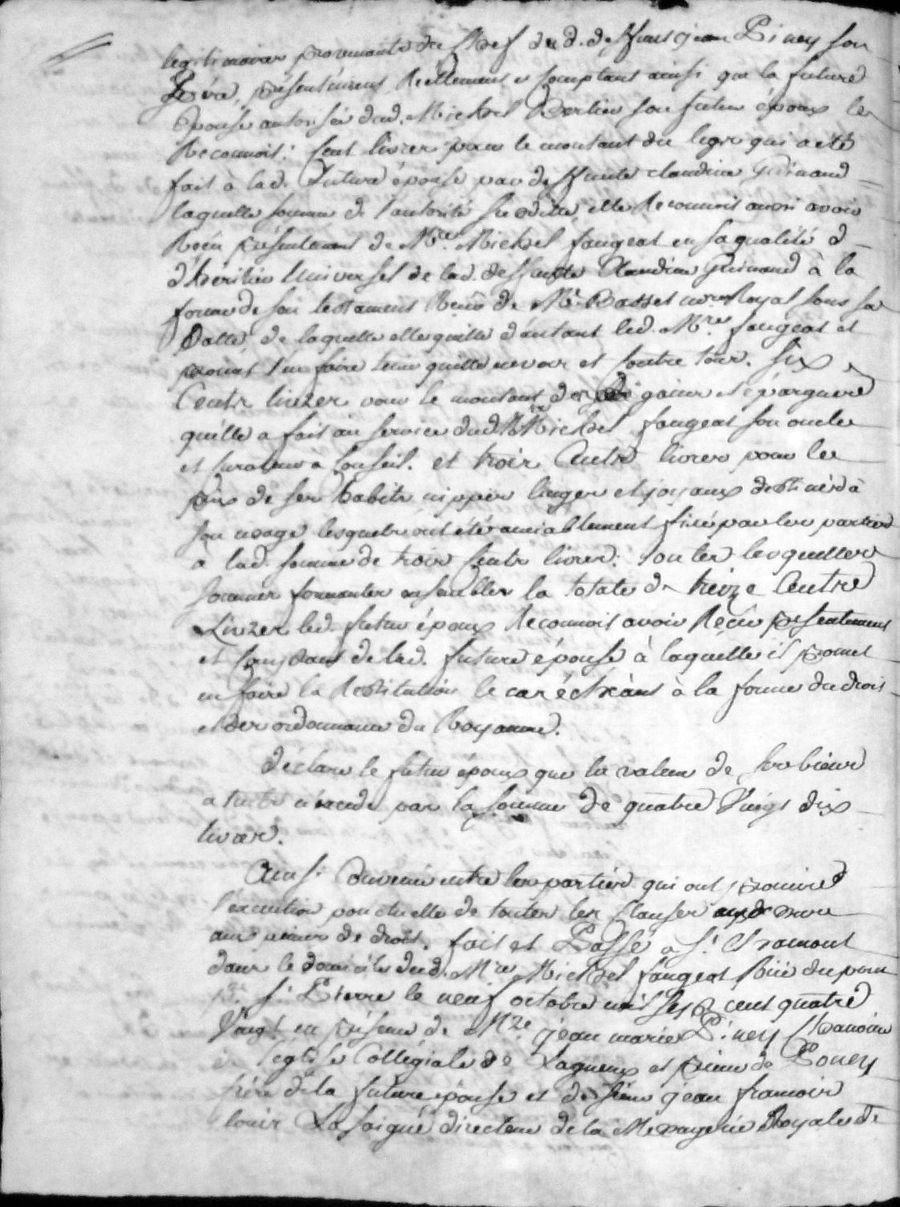 legitimaires provenants du chef du d. deffunt jean Piney son
Pere, présentement Reellement et comptant ainsi que la future
Epouse autorisée dud. Michel Berlier son futur époux le
Reconnoit: Cent livres pour le montant du legs qui a été
fait à lad. future épouse par deffunte claudine Guinand
laquelle somme de l'autorité susditte, elle Reconnoit aussi avoir
Reçu présentement de Mre Michel faugeat en sa qualité d
d'héritier Universel de lad. deffunte Claudine Guinand à la
forme de son testament Reçu de Me Basset nre Royal sous sa
Datte de laquelle elle quitte d'autant led. Mre faugeat et
promet l'en faire tenir quitte envers et contre tous. Six
Cents livres pour le montant de ses gains et épargnes
qu'elle a fait au service dud. Mre Michel faugeat son oncle
et curateur a Conseil. et trois Cents livres pour le
prix de ses habits nippes linges et joyaux destinés à
son usage lesquels ont été amiablement fixé par les parties
à lad. somme de trois Cents livres. toutes lesquelles
sommes formantes ensembles la totale de treize Cents
Livres led. futur époux Reconnoit avoir Reçu présentement
et Comptant de lad. future épouse à laquelle il promet
en faire la Restitution le cas échéant à la forme du droit
et des ordonnances du Royaume.
déclare le futur époux que la valeur de ses biens
a luits n'excede pas la somme de quatre Vingt dix
livres.
Ainsi Convenu entre les parties qui ont promis
l'execution ponctuelle de toutes les Clauses
aux peines de droit. fait et Passé a St Chamont
dans le domicile dud. Mre Michel faugeat Rüe du
St Pierre le neuf octobre mil sept cent quatre
Vingt en présence de Mre jean marie Piney Chanoine
de l'eglise Collégiale de et de Poney
frére de la future épouse et de sieur jean francois
louis Lasaigne directeur de la Messagerie Royale de